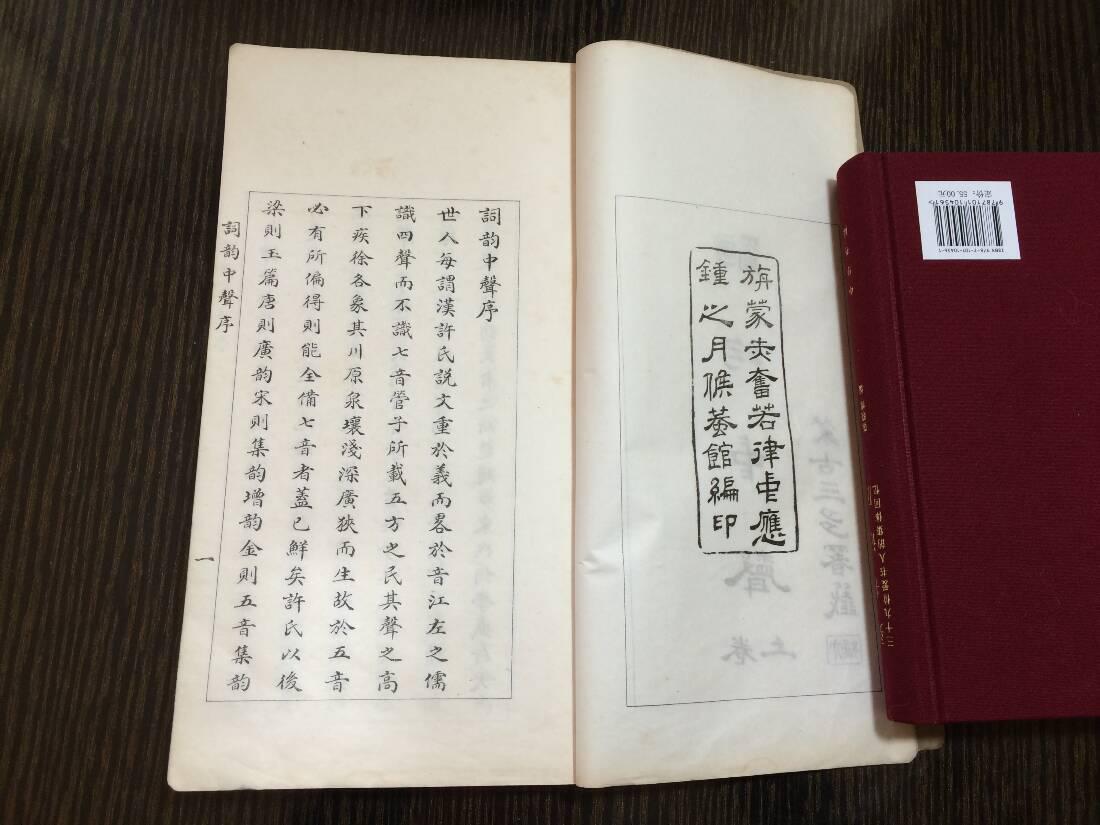 旃蒙赤奮若律中應
鍾之月倏盦館編印
詞韵中聲序
世人每謂漢許氏說文重於義而畧於音江左之儒
識四聲而不識七音管子所載五方之民其聲之高
下疾徐各象其川原泉壤淺深廣狹而生故於五音
必有所偏得則能全備七音者蓋已鮮矣許氏以後
梁則玉篇唐則廣韵宋則集韵增韵金則五音集韵
詞韵中聲序
一
定价：55.00元